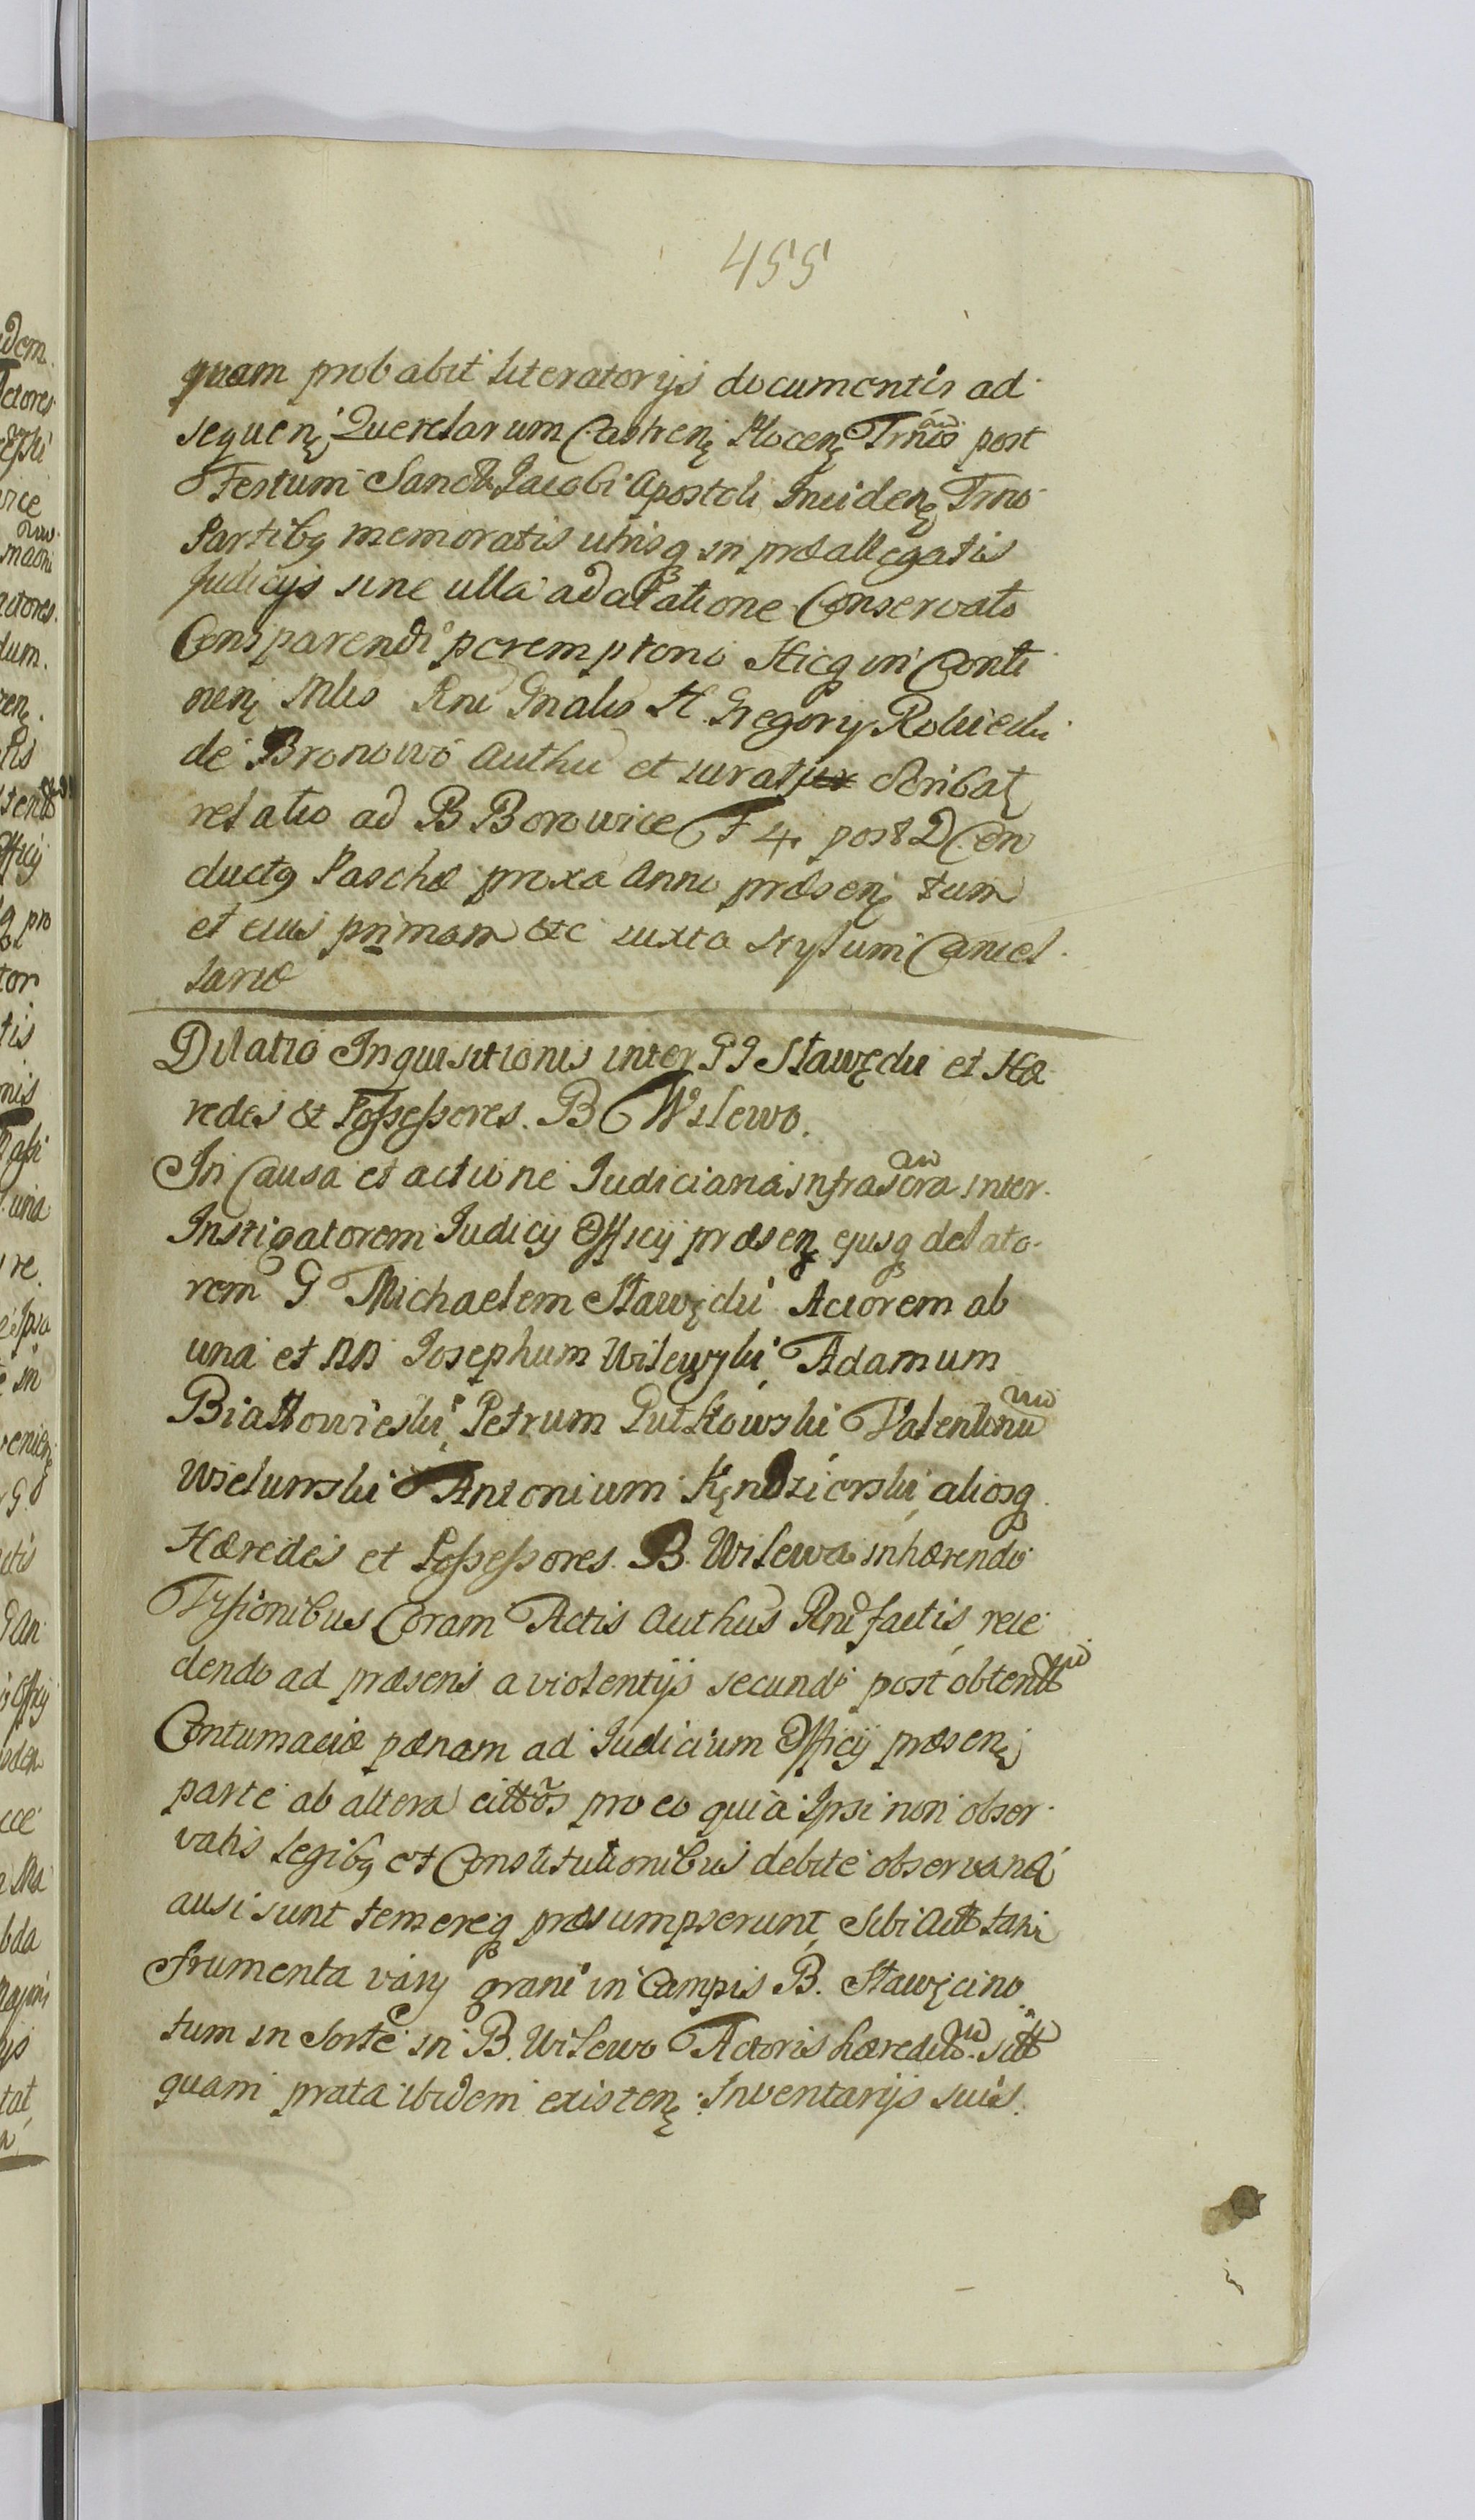 455
quam probabit literatorijs documentis ad
sequenę Querelarum Castrenę Plocenę Trnos post
Festum Sancti Jacobi Apostoli Incidenę Trno
Partibq memoratis utrisq in præallegatis
Judicijs sine ulla adcitatione Conservato
Comparendi peremptorio Hicq in Conti
nenę Mlis Rni Gnalis H. Gregorij Robiecki
de Bronowo Authu et jurat Scribæ
relatio ad B Borowice F 4 post D Con
ductq Paschæ proxa Anni præsenę tum
et eius primam etc iuxta stylum Cancel
lariæ
Dilatio Inquisitionis inter GG Sławęcki et Hæ
redes et Possessores. B Wilewo.
In Causa et actione Judiciaria infrascra inter
Instigatorem Judicij Officij præsenę ejusq delato
rem G Michaelem Sławęcki Actorem ab
una et NN Josephum Wilewski, Adamum
Białkowieski, Petrum Gutkowski Valentinu
Wielunski Antonium Kęndzierski, aliosq
Hæredes et Possessores B. Wilewa inhærendo
coram Actis Authus Rni factis, rece
dendo ad præsens a violentijs secundo post obtent
Contumaciæ pænam ad Judicium Officij præsenę
parte ab altera cittos pro eo quia Ipsi non obser
vatis legibq et Constitutionibus debite observand
ausi sunt temereq præsumpserunt, Sibi
frumenta varij grani in Campis B. Sławęcino
tum in Sorte in B. Wilewo Actoris hæredit sitt
quam prata ibidem existenę Inventarijs suis